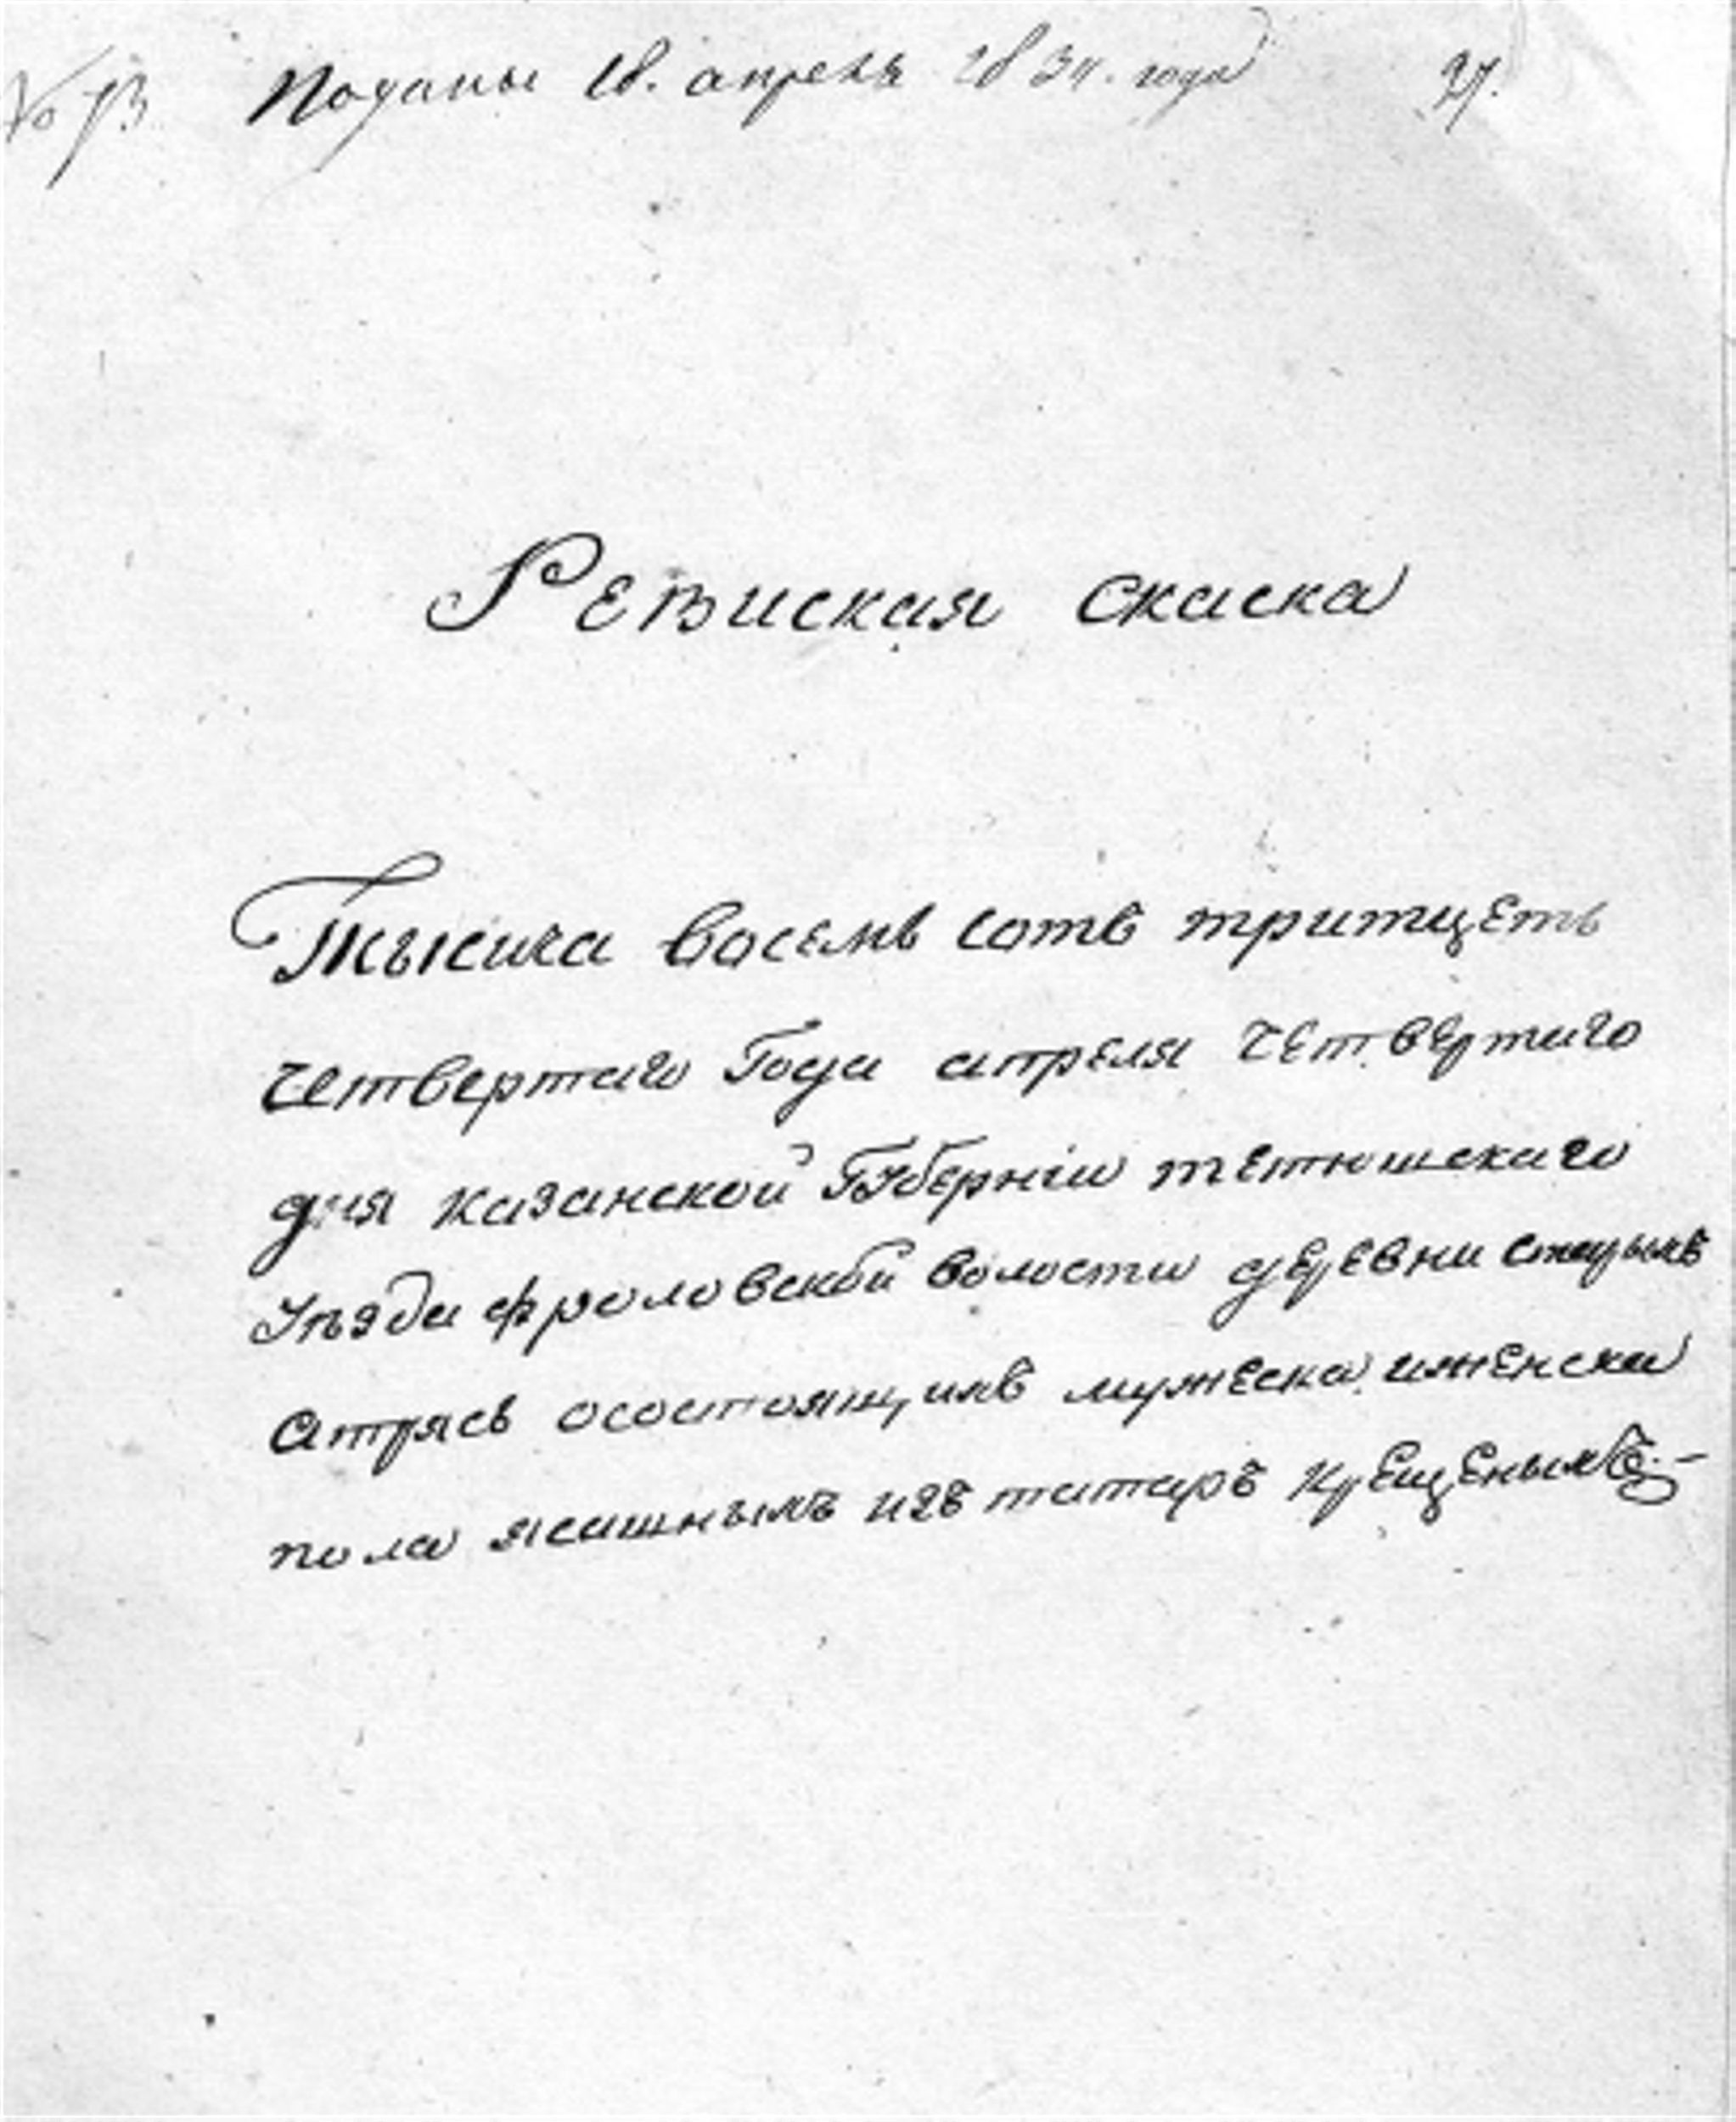 Поданы 18. апреля 1834. года
Ревиская скаска
Тысяча восемь сотъ тритцеть
четвертаго Года апреля четвертаго
дня казанской Губерніи тетюшскаго
Уезда фроловской волости деревни старыхъ
атрясь осостоящихъ мужеска иженска
пола ясашныхъ изъ татаръ крещеныхъ.-